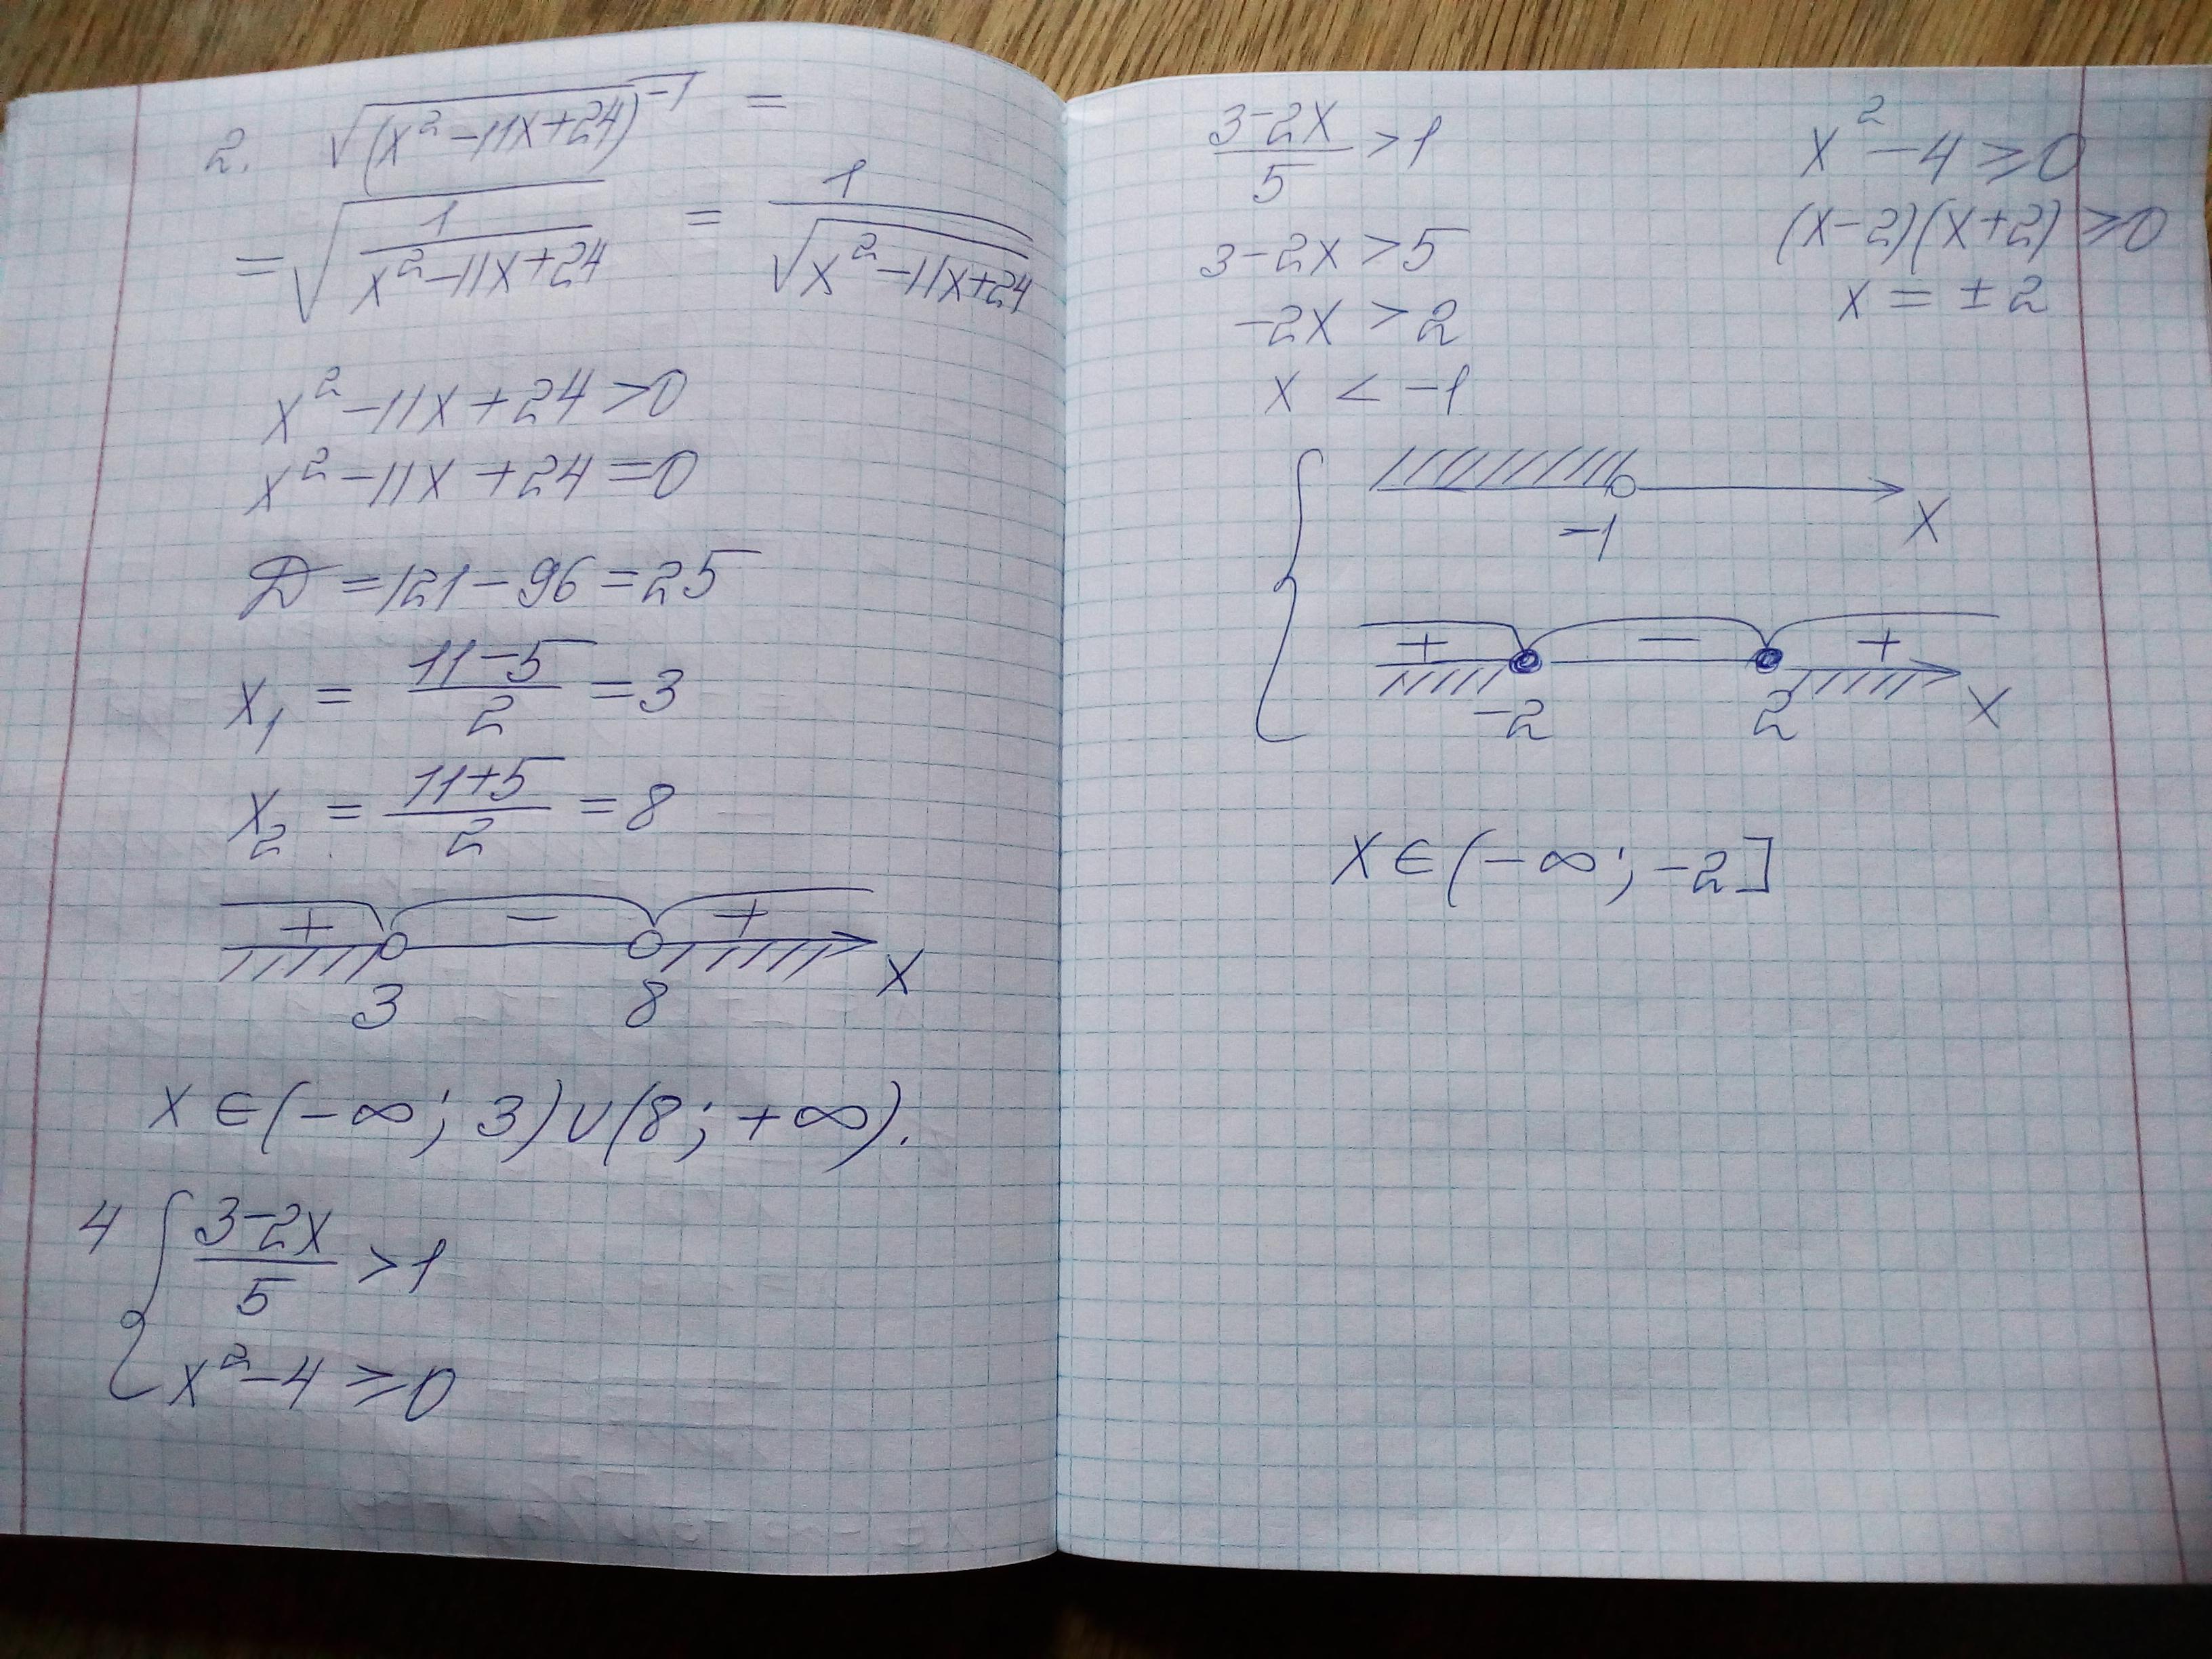 2. √(x²-11x+24)⁻¹ =
= √(1/(x²-11x+24)) = 1/√(x²-11x+24)
x²-11x+24>0
x²-11x+24=0
D=121-96=25
x₁ = (11-5)/2 = 3
x₂ = (11+5)/2 = 8
+ - +
3 8 x
x∈(-∞; 3)∪(8; +∞).
4 { (3-2x)/5 >1
x²-4≥0
(3-2x)/5 >1
3-2x>5
-2x>2
x < -1
x²-4≥0
(x-2)(x+2)≥0
x = ±2
{ -1 x
+ - +
-2 2 x
x∈(-∞; -2]